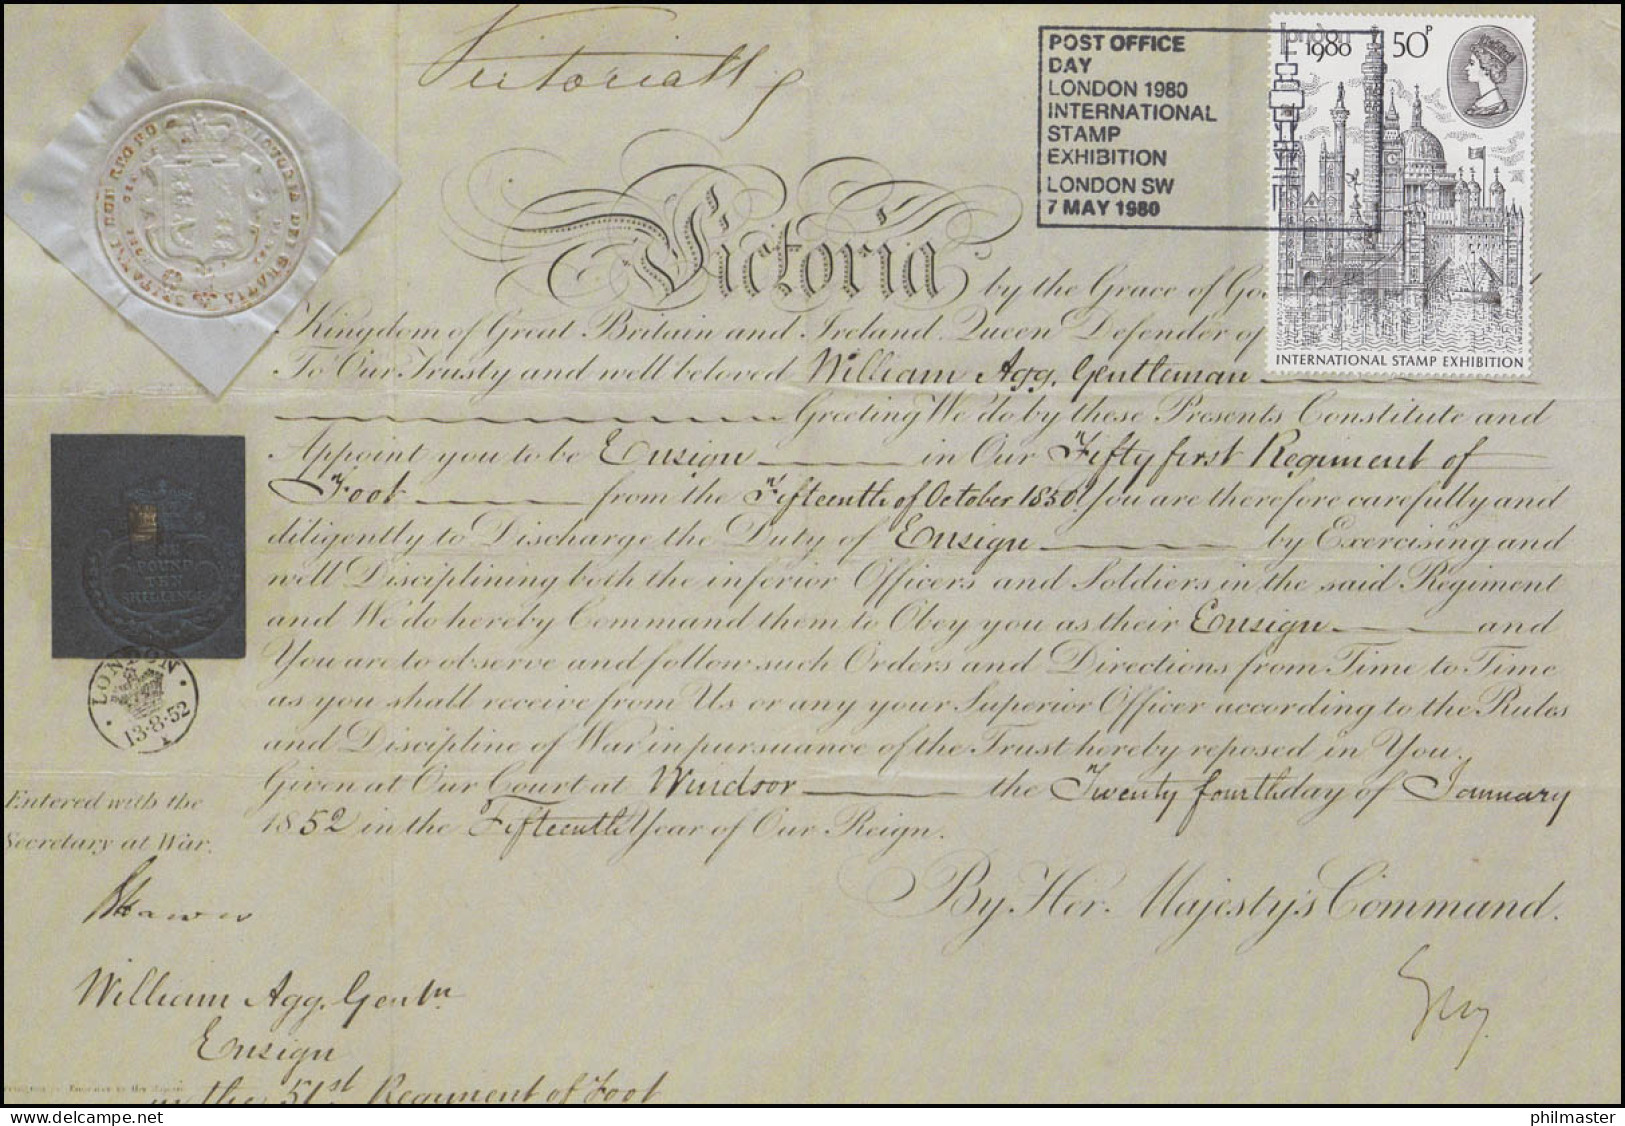 Victoria R
POST OFFICE
DAY
LONDON 1980
INTERNATIONAL
STAMP
EXHIBITION
LONDON SW
7 MAY 1980
London
1980
50P
INTERNATIONAL STAMP EXHIBITION
VICTORIA DEI GRATIA BRITANNIAR REG
Victoria by the Grace of Go
Kingdom of Great Britain and Ireland Queen Defender of
To Our Trusty and well beloved William Agg, Gentleman
Greeting We do by these Presents Constitute and
Appoint you to be Ensign in Our Fifty first Regiment of
Foot from the Fifteenth of October 1850. You are therefore carefully and
diligently to Discharge the Duty of Ensign by Exercising and
well Disciplining both the inferior Officers and Soldiers in the said Regiment
and We do hereby Command them to Obey you as their Ensign and
You are to observe and follow such Orders and Directions from Time to Time
as you shall receive from Us or any your Superior Officer according to the Rules
and Discipline of War in pursuance of the Trust hereby reposed in You.
Given at Our Court at Windsor the Twenty fourth day of January
1852 in the Fifteenth Year of Our Reign.
By Her Majesty's Command.
POUND
TEN
SHILLINGS
LONDON
13·8·52
Entered with the
Secretary at War.
William Agg, Gentn
Ensign
in the 51st Regiment of Foot
philmaster